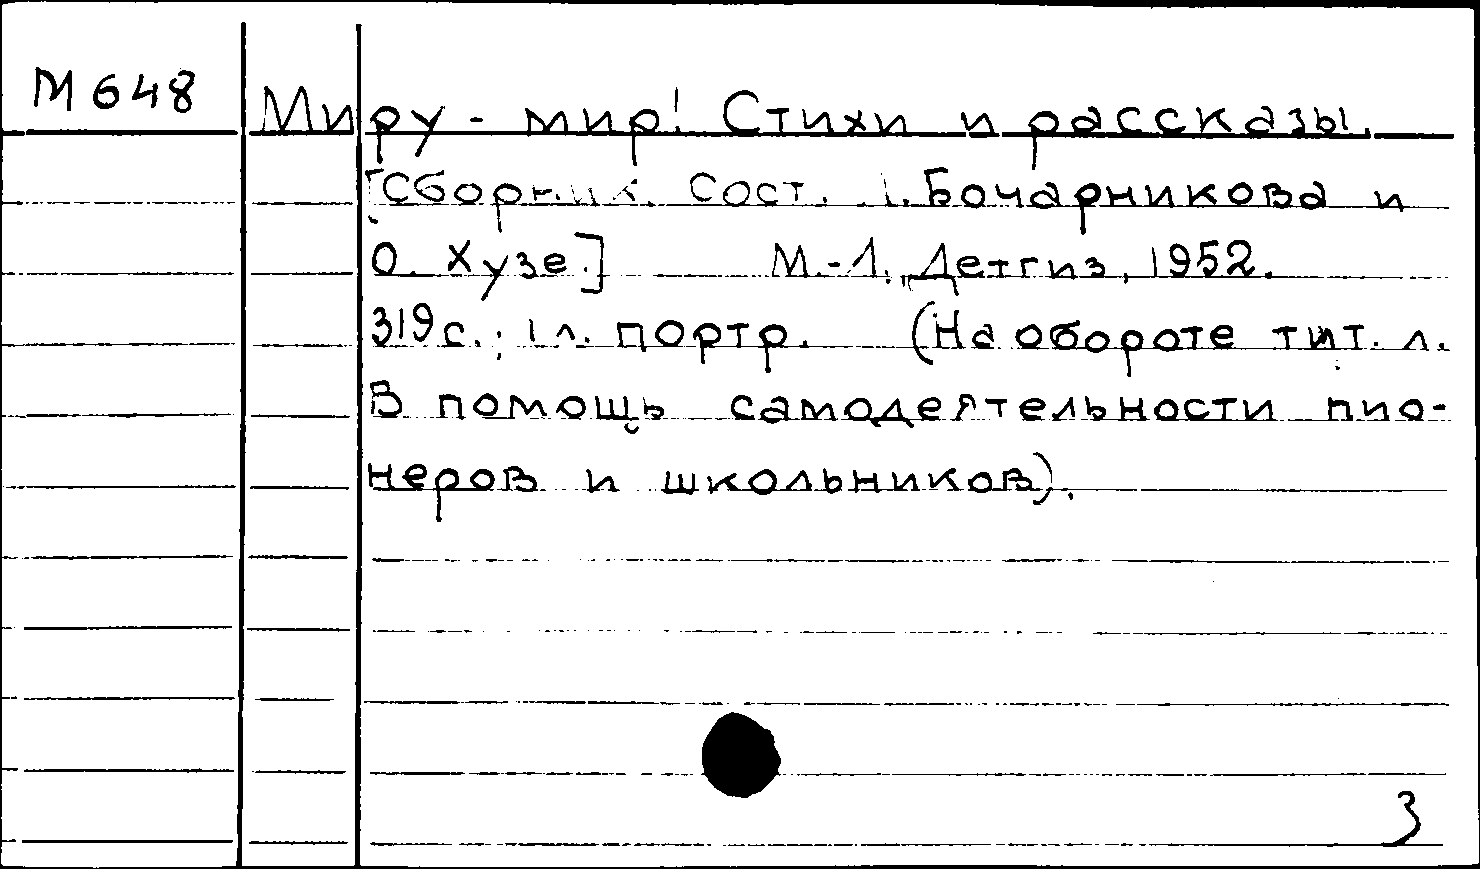 М648
Миру - мир! Стихи и рассказы.
[Сборник. Сост. Бочарникова и
О. Хузе.] М.-Л., Детгиз, 1952.
319с.; 1 л. портр. (На обороте тит. л.
В помощь самодеятельности пио-
неров и школьников).
3